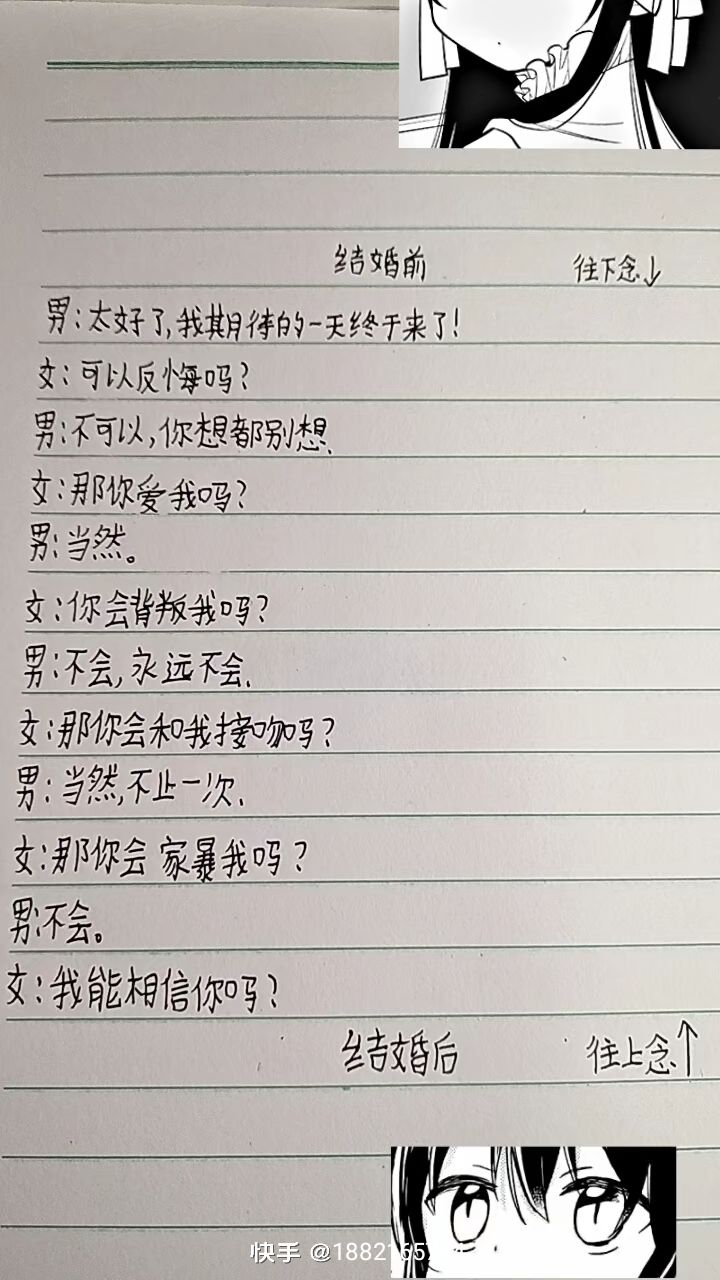 结婚前 往下念↓
男:太好了,我期待的一天终于来了!
女:可以反悔吗?
男:不可以,你想都别想.
女:那你爱我吗?
男:当然。
女:你会背叛我吗?
男:不会,永远不会.
女:那你会和我接吻吗?
男:当然,不止一次.
女:那你会家暴我吗?
男:不会。
女:我能相信你吗?
结婚后 往上念↑
快手